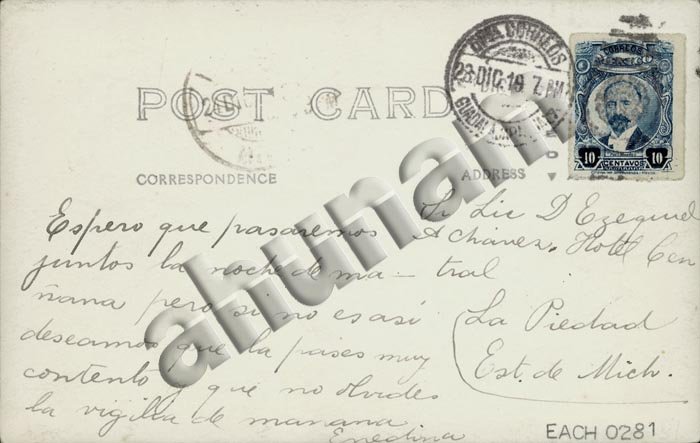 POST CARD
CORRESPONDENCE
ADDRESS
OFNA. CORREOS
23 DIC 19 7 AM
GUADALAJARA, JAL.
CORREOS
MEXICO
10 CENTAVOS 10
Espero que pasaremos
juntos la noche de ma-
ñana pero si no es así
deseamos que la pases muy
contento y que no olvides
la vigilia de manana
Enedina
Sr Lic D Ezequiel
A Chávez. Hotel Cen
tral
La Piedad
Est. de Mich.
ahunam
EACH 0281